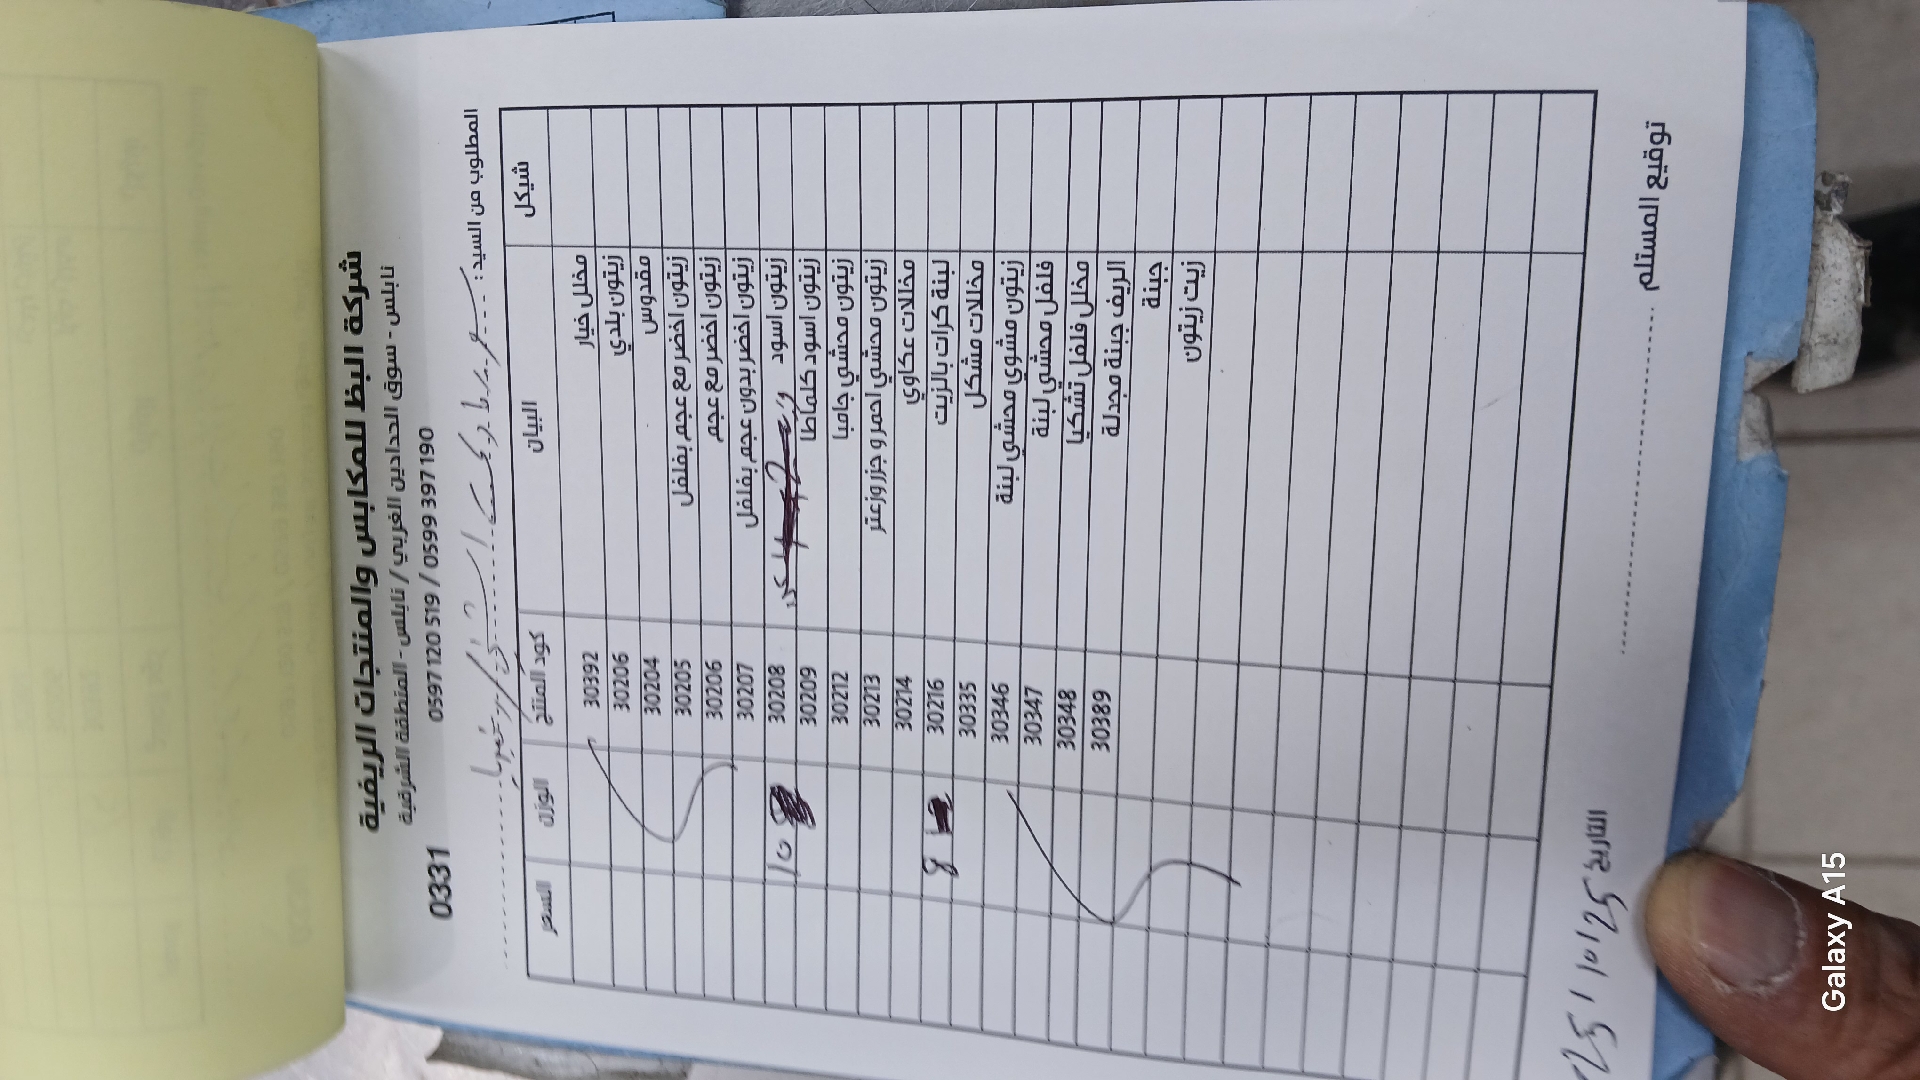 شركة البظ للمكابس والمنتجات الريفية
نابلس - سوق الحدادين الغربي / نابلس - المنطقة الشرقية
0331 0597 120 519 / 0599 397 190
المطلوب من السيد:
السعر الوزن كود المنتج البيان شيكل
30392 مخلل خيار
30206 زيتون بلدي
30204 مقدوس
30205 زيتون اخضر مع عجم بفلفل
30206 زيتون اخضر مع عجم
30207 زيتون اخضر بدون عجم بفلفل
10 30208 زيتون اسود
30209 زيتون اسود كلماطا
30212 زيتون محشي جامبا
30213 زيتون محشي احمر و جزر وزعتر
30214 مخللات عكاوي
8 30216 لبنة كرات بالزيت
30335 مخللات مشكل
30346 زيتون مشوي محشي لبنة
30347 فلفل محشي لبنة
30348 مخلل فلفل تشكيا
30389 الريف جبنة مجدلة
جبنة
زيت زيتون
التاريخ 25 / 10 / 25
توقيع المستلم
Galaxy A15